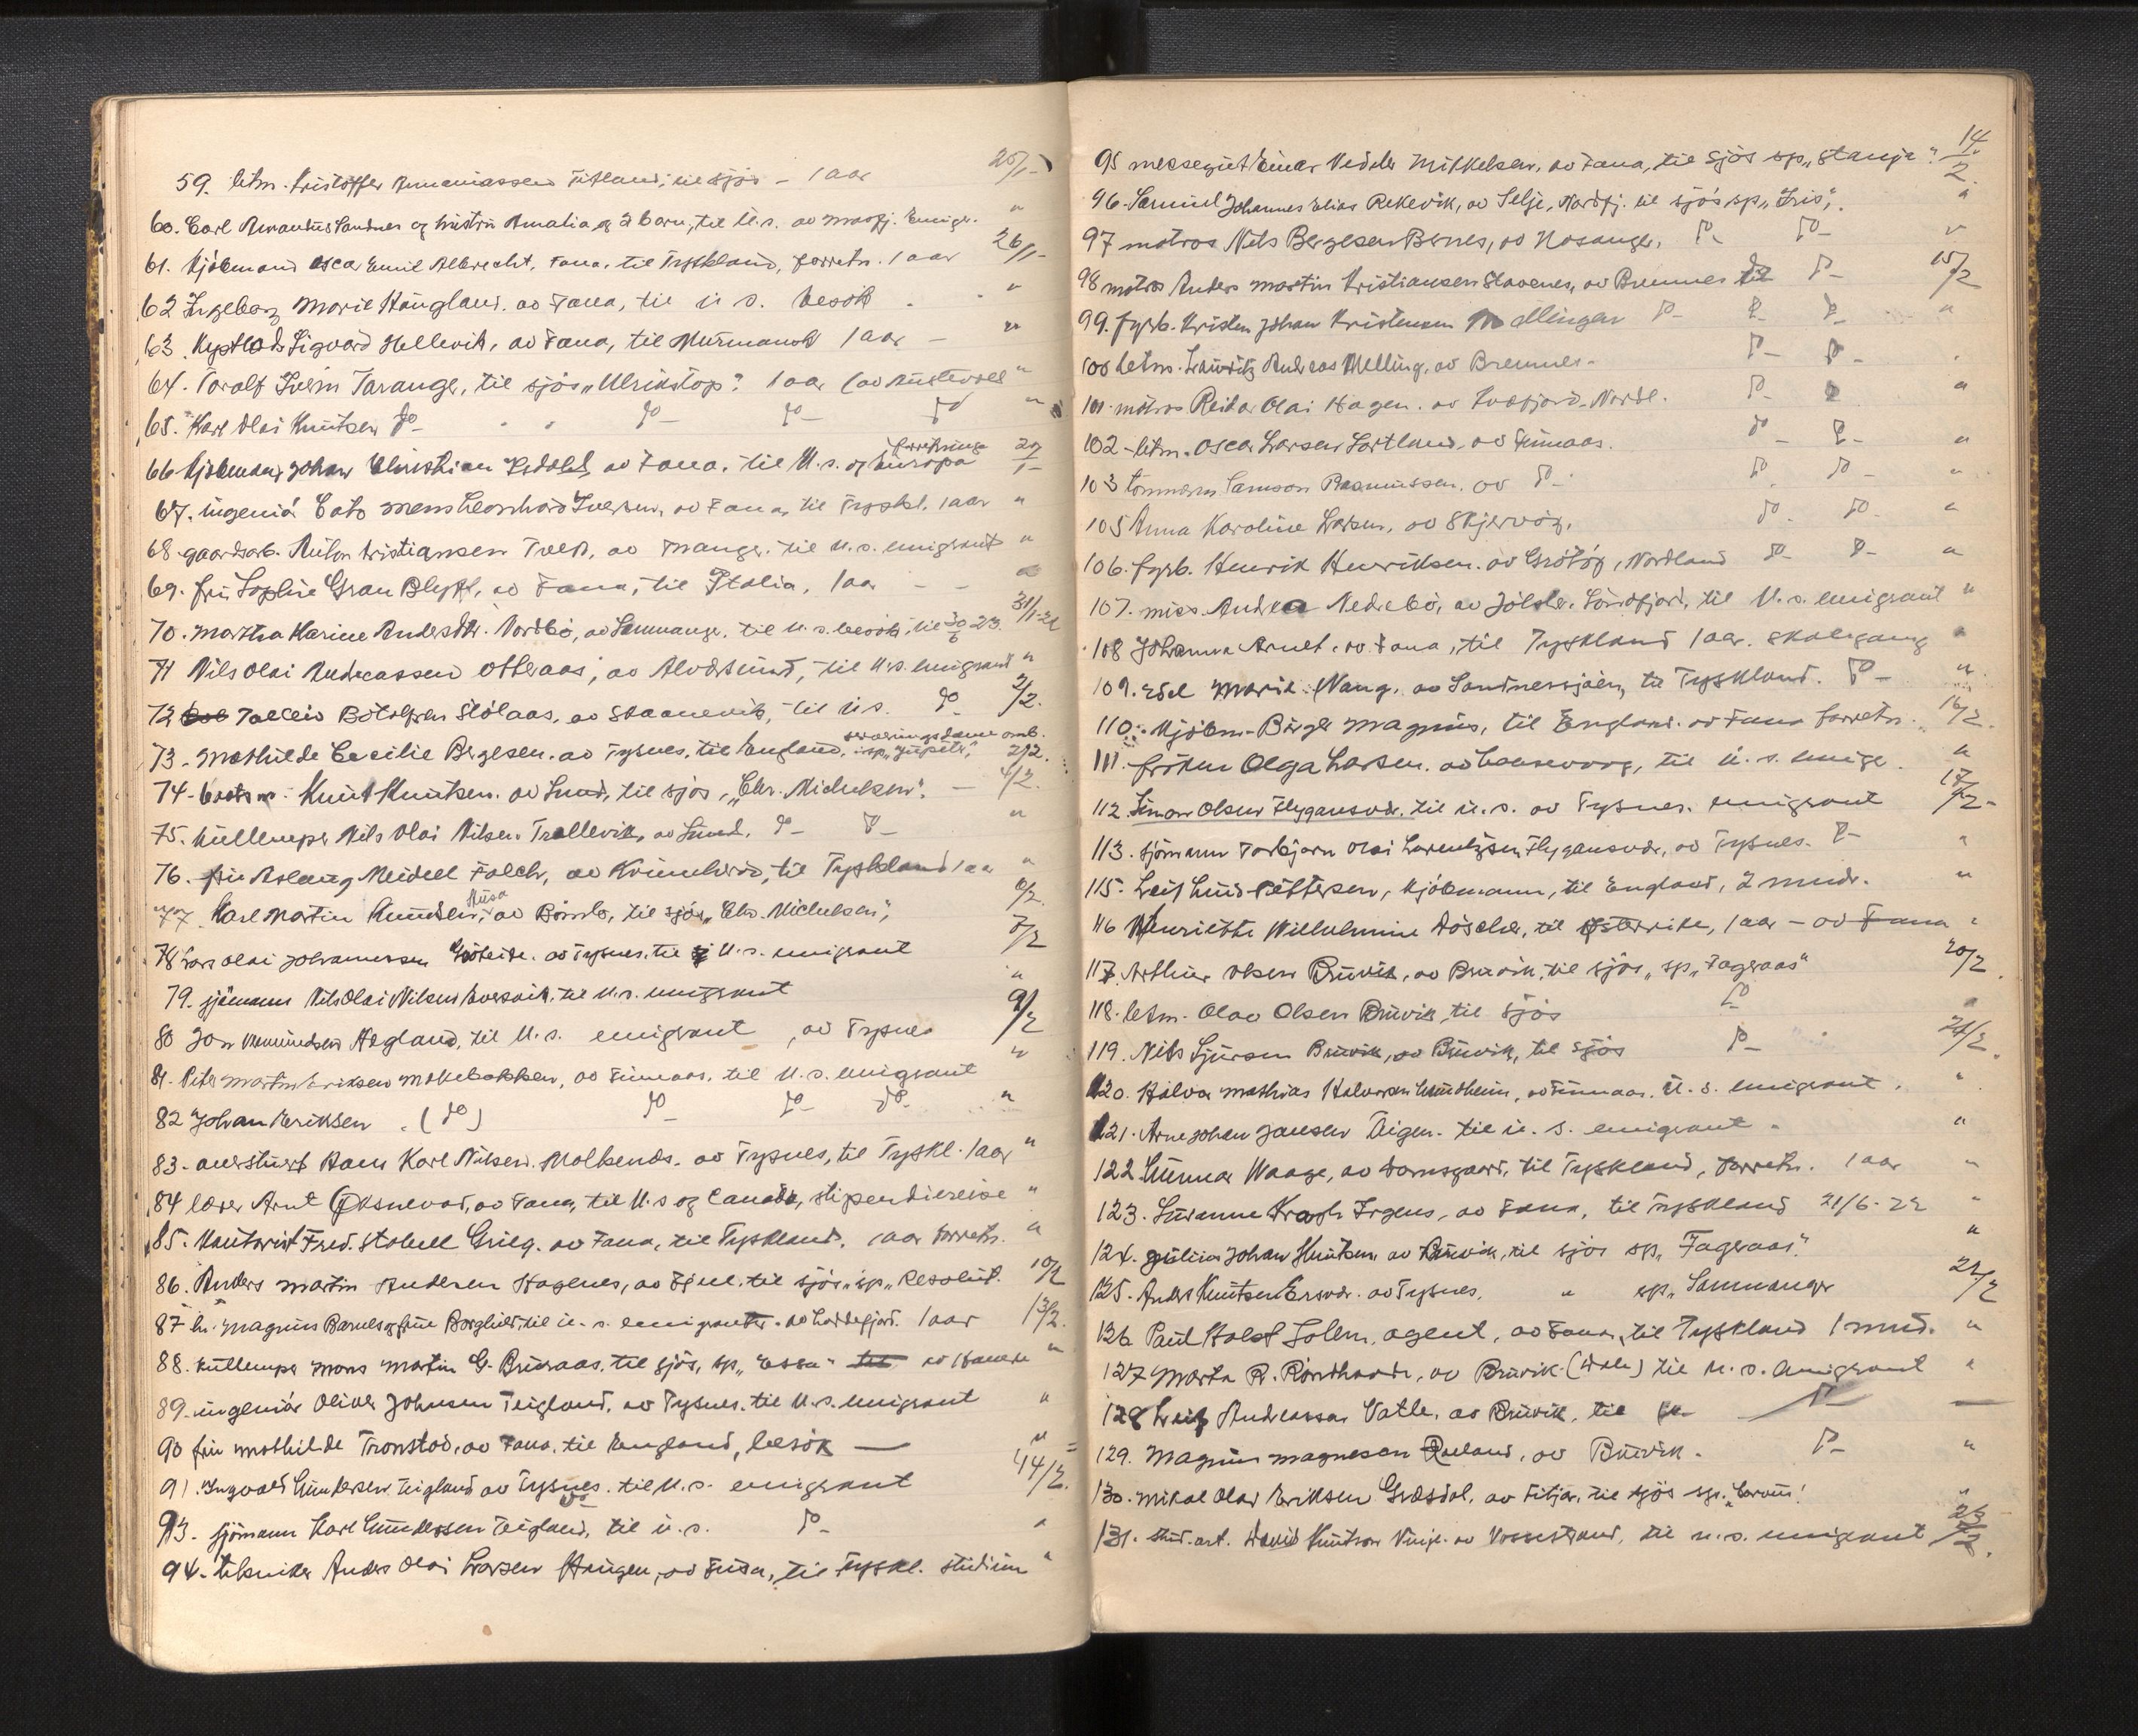 25/1
59. letm. Kristoffer Annaniassen Titland, til sjös - 1 aar
60. Carl Amandus Sandnes og hustru Amalia og 2 barn, til U.s. av Emigr. "
61. Kjöbmand Oscar Emil Albrecht, Fana, til Tyskland, forretn. 1 aar 26/1-
62 Ingeborg Marie Haugland. av Fana, til U s. besök - "
63. Sigvard Hellevik, av Fana, til Murmansk 1 aar - "
64. Toralf Sverm Tarange, til sjös "Ulrikstop" 1 aar (av Austevoll "
65. Karl Olai Knutsen do - do - do - do "
forretnings
66 Kjöbmand Johan Christian av Fana, til U.s. og Europa
67. ingeniö Cato Mons Leonhard Iversen, av Fana, til Tyskl. 1 aar "
68. gaardsarb. Anton Kristiansen Tveit, av Manger. til U.s. emigrant "
69. fru Sophie Gran Blytt, av Fana, til Italia, 1 aar - "
70. Martha Karine Andersdtr. Nordbö, av Samnanger, til U.s. besök, til 30/6-23. 31/1-22
71 Nils Olai Andreassen Otteraas, av Alversund, til U.s. emigrant "
72 Tolleiv Botolfsen Stölaas, av Skaanevik, til U s. do 2/2.
serveringsdame omb.
73. Mathilde Cecilie Bergesen. av Tysnes, til England, sp. "Jupiter", 2/2.
74. Knut Knutsen. av Sund, til sjös, "Chr. Michelsen". - 4/2.
75. kullemper Nils Olai Nilsen Trellevik, av Sund. do - do - "
76. fru Aslaug Meidell Falch, av Kvinnherad, til Tyskland 1 aar "
Husa
77. Karl Martin Knudsen, av Bömlo, til sjös "Chr. Michelsen", 6/2.
78 Lars Olai Johannessen av Tysnes, til U.s. emigrant 7/2
79. sjömann Nils Olai Nilsen til U.s. emigrant "
80 Jon Amundsen Aegland, til U.s. emigrant, av Tysnes 9/2
81. Peter Martin Eriksen Mokebakken, av Finnaas. til U.s. emigrant "
82 Johan Eriksen (do) do - do - do - "
83. Hans Karl Nilsen. av Tysnes, til Tyskl. 1 aar "
84 lærer Arnt Öksnevad, av Fana, til U.s og Canada, stipendiereise "
85. Kontorist Fred. Stabell Grieg. av Fana, til Tyskland. 1 aar forretn. "
86. Anders Martin Andersen Hagenes, av Fjell. til sjös, sp. "Resolut. 10/2
87 hr. Magnus Barnes og frue Borghild, til U.s. emigranter. av Laddefjord. 1 aar 13/2.
88. kullemper Mons Martin G. Bruraas. til sjös, sp. "Essa" til "
89. ingeniör Oliver Johnsen Teigland. av Tysnes. til U.s. emigrant "
90 fru Mathilde Tronstad, av Fana. til England, besök — "
91. Ingvald Gundersen Teigland av Tysnes. til U.s. emigrant 14/2.
93. sjömann Karl Gundersen Teigland, til U.s. do - "
94. tekniker Anders Olai Larsen Haugen, av Fusa, til Tyskl. studium "
95 messegut Einar Vedeler Mikkelsen, av Fana, til sjös sp. "Stanja" 14/2
96. Samuel Johannes Elias Rekevik, av Selje, Nordfj. til sjös sp. "Iris", "
97 matros Nils Bergesen Bernes, av Hosanger, do - do - "
98 matros Anders Martin Kristiansen Stavenes, av Bremnes til do - 15/2
99. fyrb. Kristen Johan Kristensen Mællingen do - do - do - "
100 letm. Lauritz Andreas Melling, av Bremnes - do - do - "
101. matros Reidar Olai Hagen. av Nordl. do - do "
102 - letm. Oscar Larsen Lortland, av Finnaas. do - do - "
103 tömmerm Samson Rasmussen. av do - do - do - "
105 Anna Karoline Larsen, av Skjervöy. do - do - "
106. fyrb. Henrik Henriksen. av Grötöy, Nordland do - do - "
107. miss Andrea Nedrebö, av Jölster. Söndfjord, til U.s. emigrant "
108 Johanna Arnet. av Fana, til Tyskland 1 aar. skolegang "
109. Edel Marie Wang, av Sandnessjöen, til Tyskland. do - "
110. Kjöbm. Birger Magnus, til England. av Fana forretn. 16/2.
111. fröken Olga Larsen. av til U.s. emigr. "
112. Simon Olsen Flygansvær. til U.s. av Tysnes. emigrant 17/2-
113. sjömann Torbjørn Olai Larentzsen Flygansvær, av Tysnes. do - "
115. Leif Lund Pettersen, kjöbmann, til England, 2 mndr. "
116 Henriette Wilhelmine til Østerrike, 1 aar - av Fana "
117. Arthur Olsen Bruvik, av Bruvik, til sjös, sp. "Fageraas" 20/2.
118. letm. Olav Olsen Bruvik, til sjös do - "
119. Nils Sjursen Bruvik, av Bruvik, til sjös do - 21/2.
120. Halvor Mathias Halvorsen av Finnaas. U.s. emigrant. "
121. Arne Johan Jansen Eigen. til U.s. emigrant. "
122 Gunnar Waage, av Damsgaard. til Tyskland, forretn. 1 aar "
123. Susanne Krogh Irgens, av Fana, til Tyskland 21/6-22 "
124. Johan Knutsen av Bruvik, til sjös sp. "Fageraas". "
125. Anders Knutsen Ersvær. av Tysnes, " sp. "Samnanger 22/2
126 Paul Holst Solem, agent, av Fana, til Tyskland 1 mnd. "
127 Marta R. Rondhovde, av Bruvik (Dale) til U.s. emigrant "
128 Leif Andreassen Vatle, av Bruvik, til do - —
129. Magnus Magnesen Rolland, av Bruvik. do - "
130. Mikal Olav Eriksen Græsdal, av Fitjar, til sjös sp. "Corvus! "
131. stud. art. David Knutson Vinje. av Vossestrand, til U.s. emigrant 23/2.